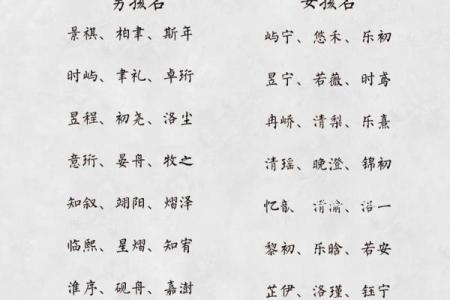 男孩名
景祺、柏聿、斯年
时屿、聿礼、卓珩
昱程、初尧、洛尘
意珩、晏舟、牧之
知叙、翊阳、熠泽
临熙、星熠、知宥
淮序、砚舟、嘉澍
女孩名
屿宁、悠禾、乐初
昱宁、若薇、时鸢
冉峤、清梨、乐熹
清瑶、晚澄、锦初
忆歆、清渝、洛一
黎初、乐晗、若安
芷伊、洛瑾、钰宁